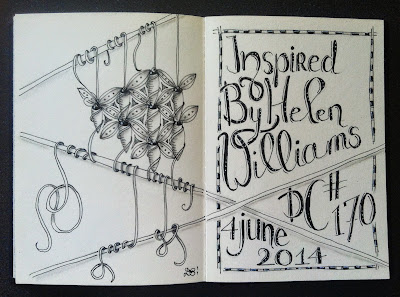 Inspired
By Helen
Williams
DC#
170
4 june
2014